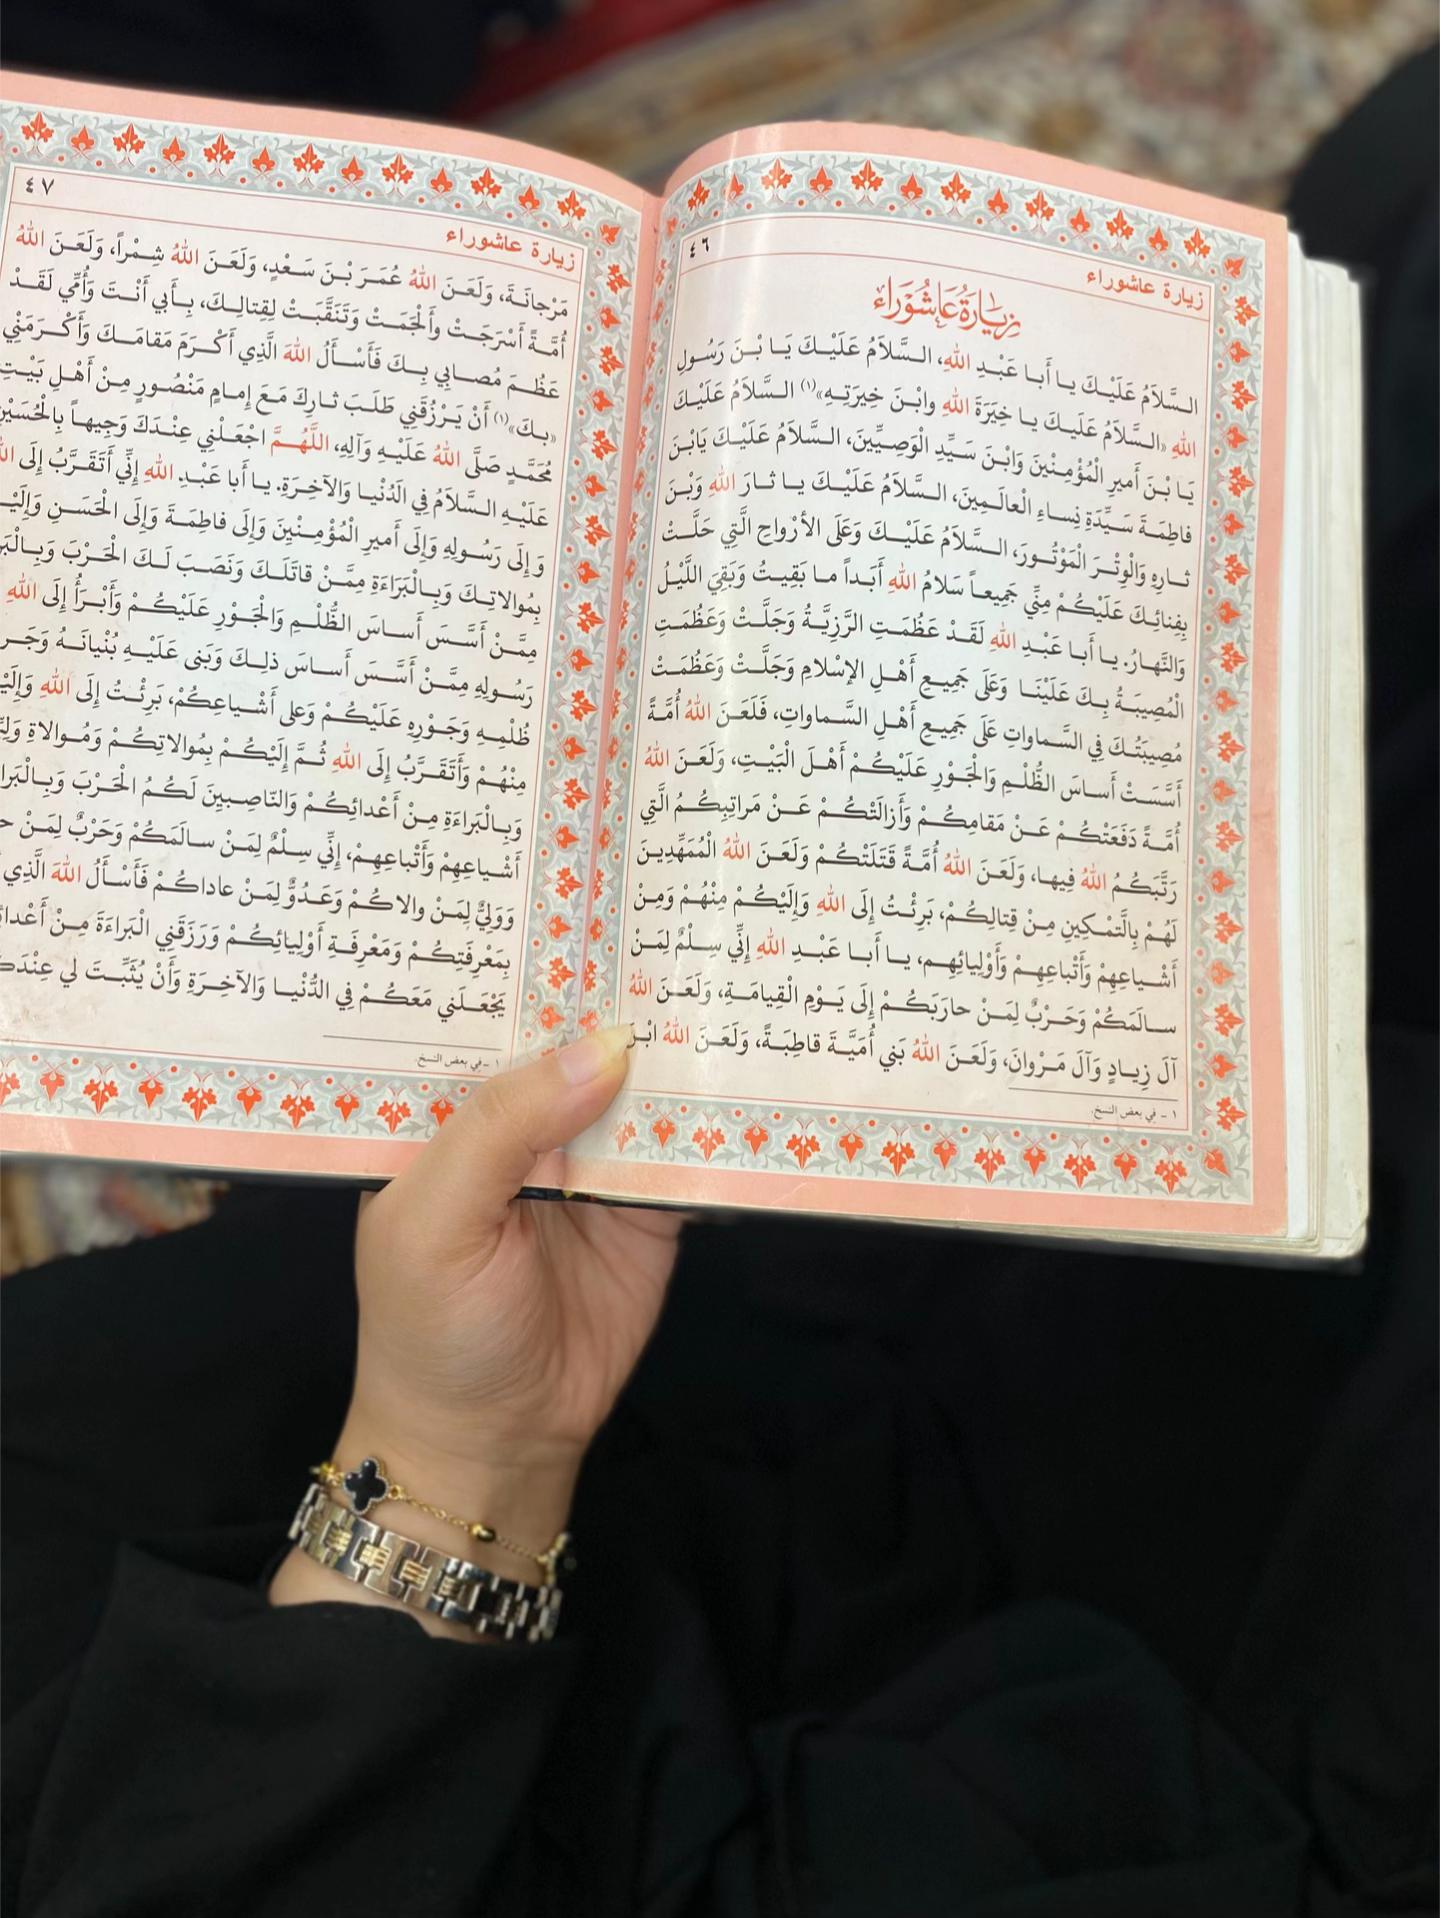 ٤٦
زيارة عاشوراء
زِيَارَةُ عَاشُورَاء
السَّلاَمُ عَلَيْكَ يا أَبا عَبْدِ اللهِ، السَّلاَمُ عَلَيْكَ يَا بْنَ رَسُولِ
اللهِ «السَّلاَمُ عَلَيكَ يا خِيَرَةَ اللهِ وابْنَ خِيَرَتِهِ»(١) السَّلاَمُ عَلَيْكَ
يَا بْنَ أَميرِ الْمُؤْمِنْينَ وَابْنَ سَيِّدِ الْوَصِيِّينَ، السَّلاَمُ عَلَيْكَ يَابْنَ
فاطِمَةَ سَيِّدَةِ نِساءِ الْعالَمِينَ، السَّلاَمُ عَلَيْكَ يا ثارَ اللهِ وَبْنَ
ثارِهِ وَالْوِتْرَ الْمَوْتُورَ، السَّلاَمُ عَلَيْكَ وَعَلَى الأَرْواحِ الَّتِي حَلَّتْ
بِفِنائِكَ عَلَيْكُمْ مِنِّي جَمِيعاً سَلامُ اللهِ أَبَداً ما بَقِيتُ وَبَقِيَ اللَّيْلُ
وَالنَّهارُ. يا أَبا عَبْدِ اللهِ لَقَدْ عَظُمَتِ الرَّزِيَّةُ وَجَلَّتْ وَعَظُمَتِ
الْمُصِيبَةُ بِكَ عَلَيْنَا وَعَلَى جَمِيعِ أَهْلِ الإسْلامِ وَجَلَّتْ وَعَظُمَتْ
مُصِيبَتُكَ فِي السَّماواتِ عَلَى جَمِيعِ أَهْلِ السَّماواتِ، فَلَعَنَ اللهُ أُمَّةً
أَسَّسَتْ أَساسَ الظُّلْمِ وَالْجَوْرِ عَلَيْكُمْ أَهْلَ الْبَيْتِ، وَلَعَنَ اللهُ
أُمَّةً دَفَعَتْكُمْ عَنْ مَقامِكُمْ وَأَزالَتْكُمْ عَنْ مَراتِبِكُمُ الَّتِي
رَتَّبَكُمُ اللهُ فِيها، وَلَعَنَ اللهُ أُمَّةً قَتَلَتْكُمْ وَلَعَنَ اللهُ الْمُمَهِّدِينَ
لَهُمْ بِالتَّمْكِينِ مِنْ قِتالِكُمْ، بَرِئْتُ إِلَى اللهِ وَإِلَيْكُمْ مِنْهُمْ وَمِنْ
أَشْياعِهِمْ وَأَتْباعِهِمْ وَأَوْلِيائِهِم، يا أَبا عَبْدِ اللهِ إِنِّي سِلْمٌ لِمَنْ
سالَمَكُمْ وَحَرْبٌ لِمَنْ حارَبَكُمْ إِلَى يَوْمِ الْقِيامَةِ، وَلَعَنَ اللهُ
آلَ زِيادٍ وَآلَ مَرْوانَ، وَلَعَنَ اللهُ بَني أُمَيَّةَ قاطِبَةً، وَلَعَنَ اللهُ ابْنَ
١ - في بعض النسخ.
٤٧
زيارة عاشوراء
مَرْجانَةَ، وَلَعَنَ اللهُ عُمَرَ بْنَ سَعْدٍ، وَلَعَنَ اللهُ شِمْراً، وَلَعَنَ اللهُ
أُمَّةً أَسْرَجَتْ وأَلْجَمَتْ وَتَنَقَّبَتْ لِقِتالِكَ، بِأَبي أَنْتَ وَأُمِّي لَقَدْ
عَظُمَ مُصابي بِكَ فَأَسْأَلُ اللهَ الَّذِي أَكْرَمَ مَقامَكَ وَأَكْرَمَنْي
«بكَ»(١) أَنْ يَرْزُقَني طَلَبَ ثارِكَ مَعَ إمامٍ مَنْصُورٍ مِنْ أَهْلِ بَيْتِ
مُحَمَّدٍ صَلَّى اللهُ عَلَيْهِ وَآلِهِ، اللَّهُمَّ اجْعَلْنِي عِنْدَكَ وَجِيهاً بِالْحُسَيْنِ
عَلَيْهِ السَّلامُ فِي الدُّنْيا وَالآخِرَةِ. يا أَبا عَبْدِ اللهِ إِنِّي أَتَقَرَّبُ إلَى
وَإِلَى رَسُولِهِ وَإِلَى أَميرِ الْمُؤْمِنْينَ وَإِلَى فاطِمَةَ وَإِلَى الْحَسَنِ
بِمُوالاتِكَ وَبِالْبَرَاءَةِ مِمَّنْ قاتَلَكَ وَنَصَبَ لَكَ الْحَرْبَ
مِمَّنْ أَسَّسَ أَساسَ الظُّلْمِ وَالْجَوْرِ عَلَيْكُمْ وَأَبْرَأُ إِلَى اللهِ
رَسُولِهِ مِمَّنْ أَسَّسَ أَساسَ ذلِكَ وَبَنى عَلَيْهِ بُنْيانَهُ
ظُلْمِهِ وَجَوْرِهِ عَلَيْكُمْ وَعلى أَشْياعِكُمْ، بَرِئْتُ إِلَى اللهِ
مِنْهُمْ وَأَتَقَرَّبُ إِلَى اللهِ ثُمَّ إِلَيْكُمْ بِمُوالاتِكُمْ وَمُوالاةِ
وَبِالْبَراءَةِ مِنْ أَعْدائِكُمْ وَالنّاصِبِينَ لَكُمُ الْحَرْبَ
أَشْياعِهِمْ وَأَتْباعِهِمْ، إِنِّي سِلْمٌ لِمَنْ سالَمَكُمْ وَحَرْبٌ لِمَنْ
وَوَلِيٌّ لِمَنْ والاكُمْ وَعَدُوٌّ لِمَنْ عاداكُمْ فَأَسْأَلُ اللهَ الَّذِي
بِمَعْرِفَتِكُمْ وَمَعْرِفَةِ أَوْلِيائِكُمْ وَرَزَقَنِي الْبَراءَةَ مِنْ
يَجْعَلَني مَعَكُمْ فِي الدُّنْيا وَالآخِرَةِ وَأَنْ يُثَبِّتَ لي
١ - في بعض النسخ.